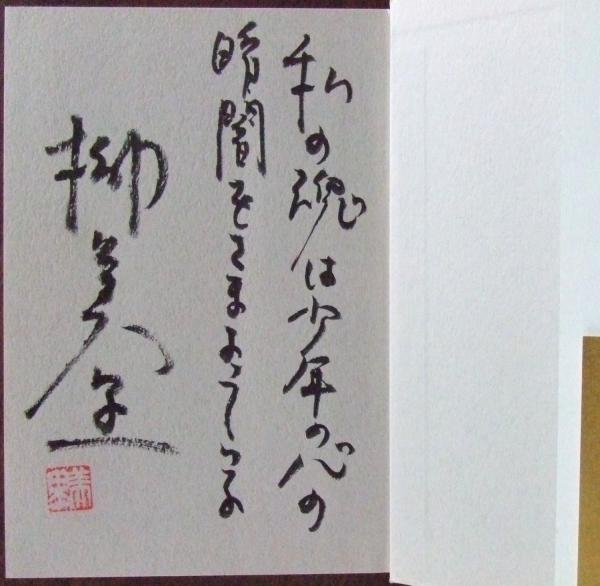 私の魂は少年の心の
暗闇をさまよっている
柳美里